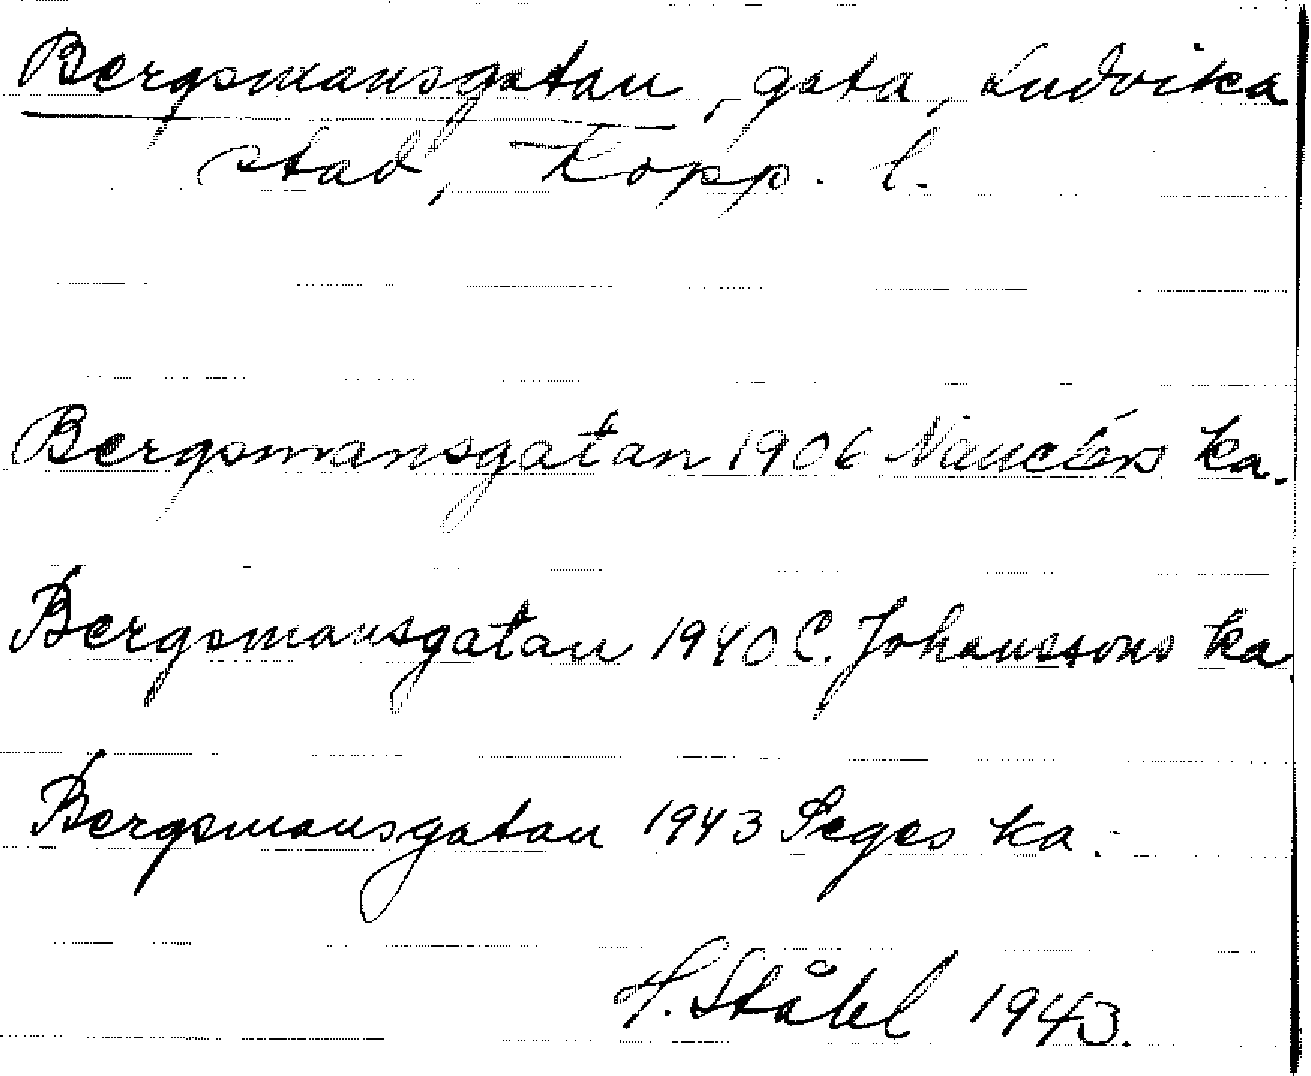 Bergsmansgatan, gata, Ludvika
stad, Kopp. l.
Bergsmansgatan 1906 Nauclérs ka.
Bergsmansgatan 1940 C. Johanssons ka.
Bergsmansgatan 1943 Seges ka.
H. Ståhl 1943.